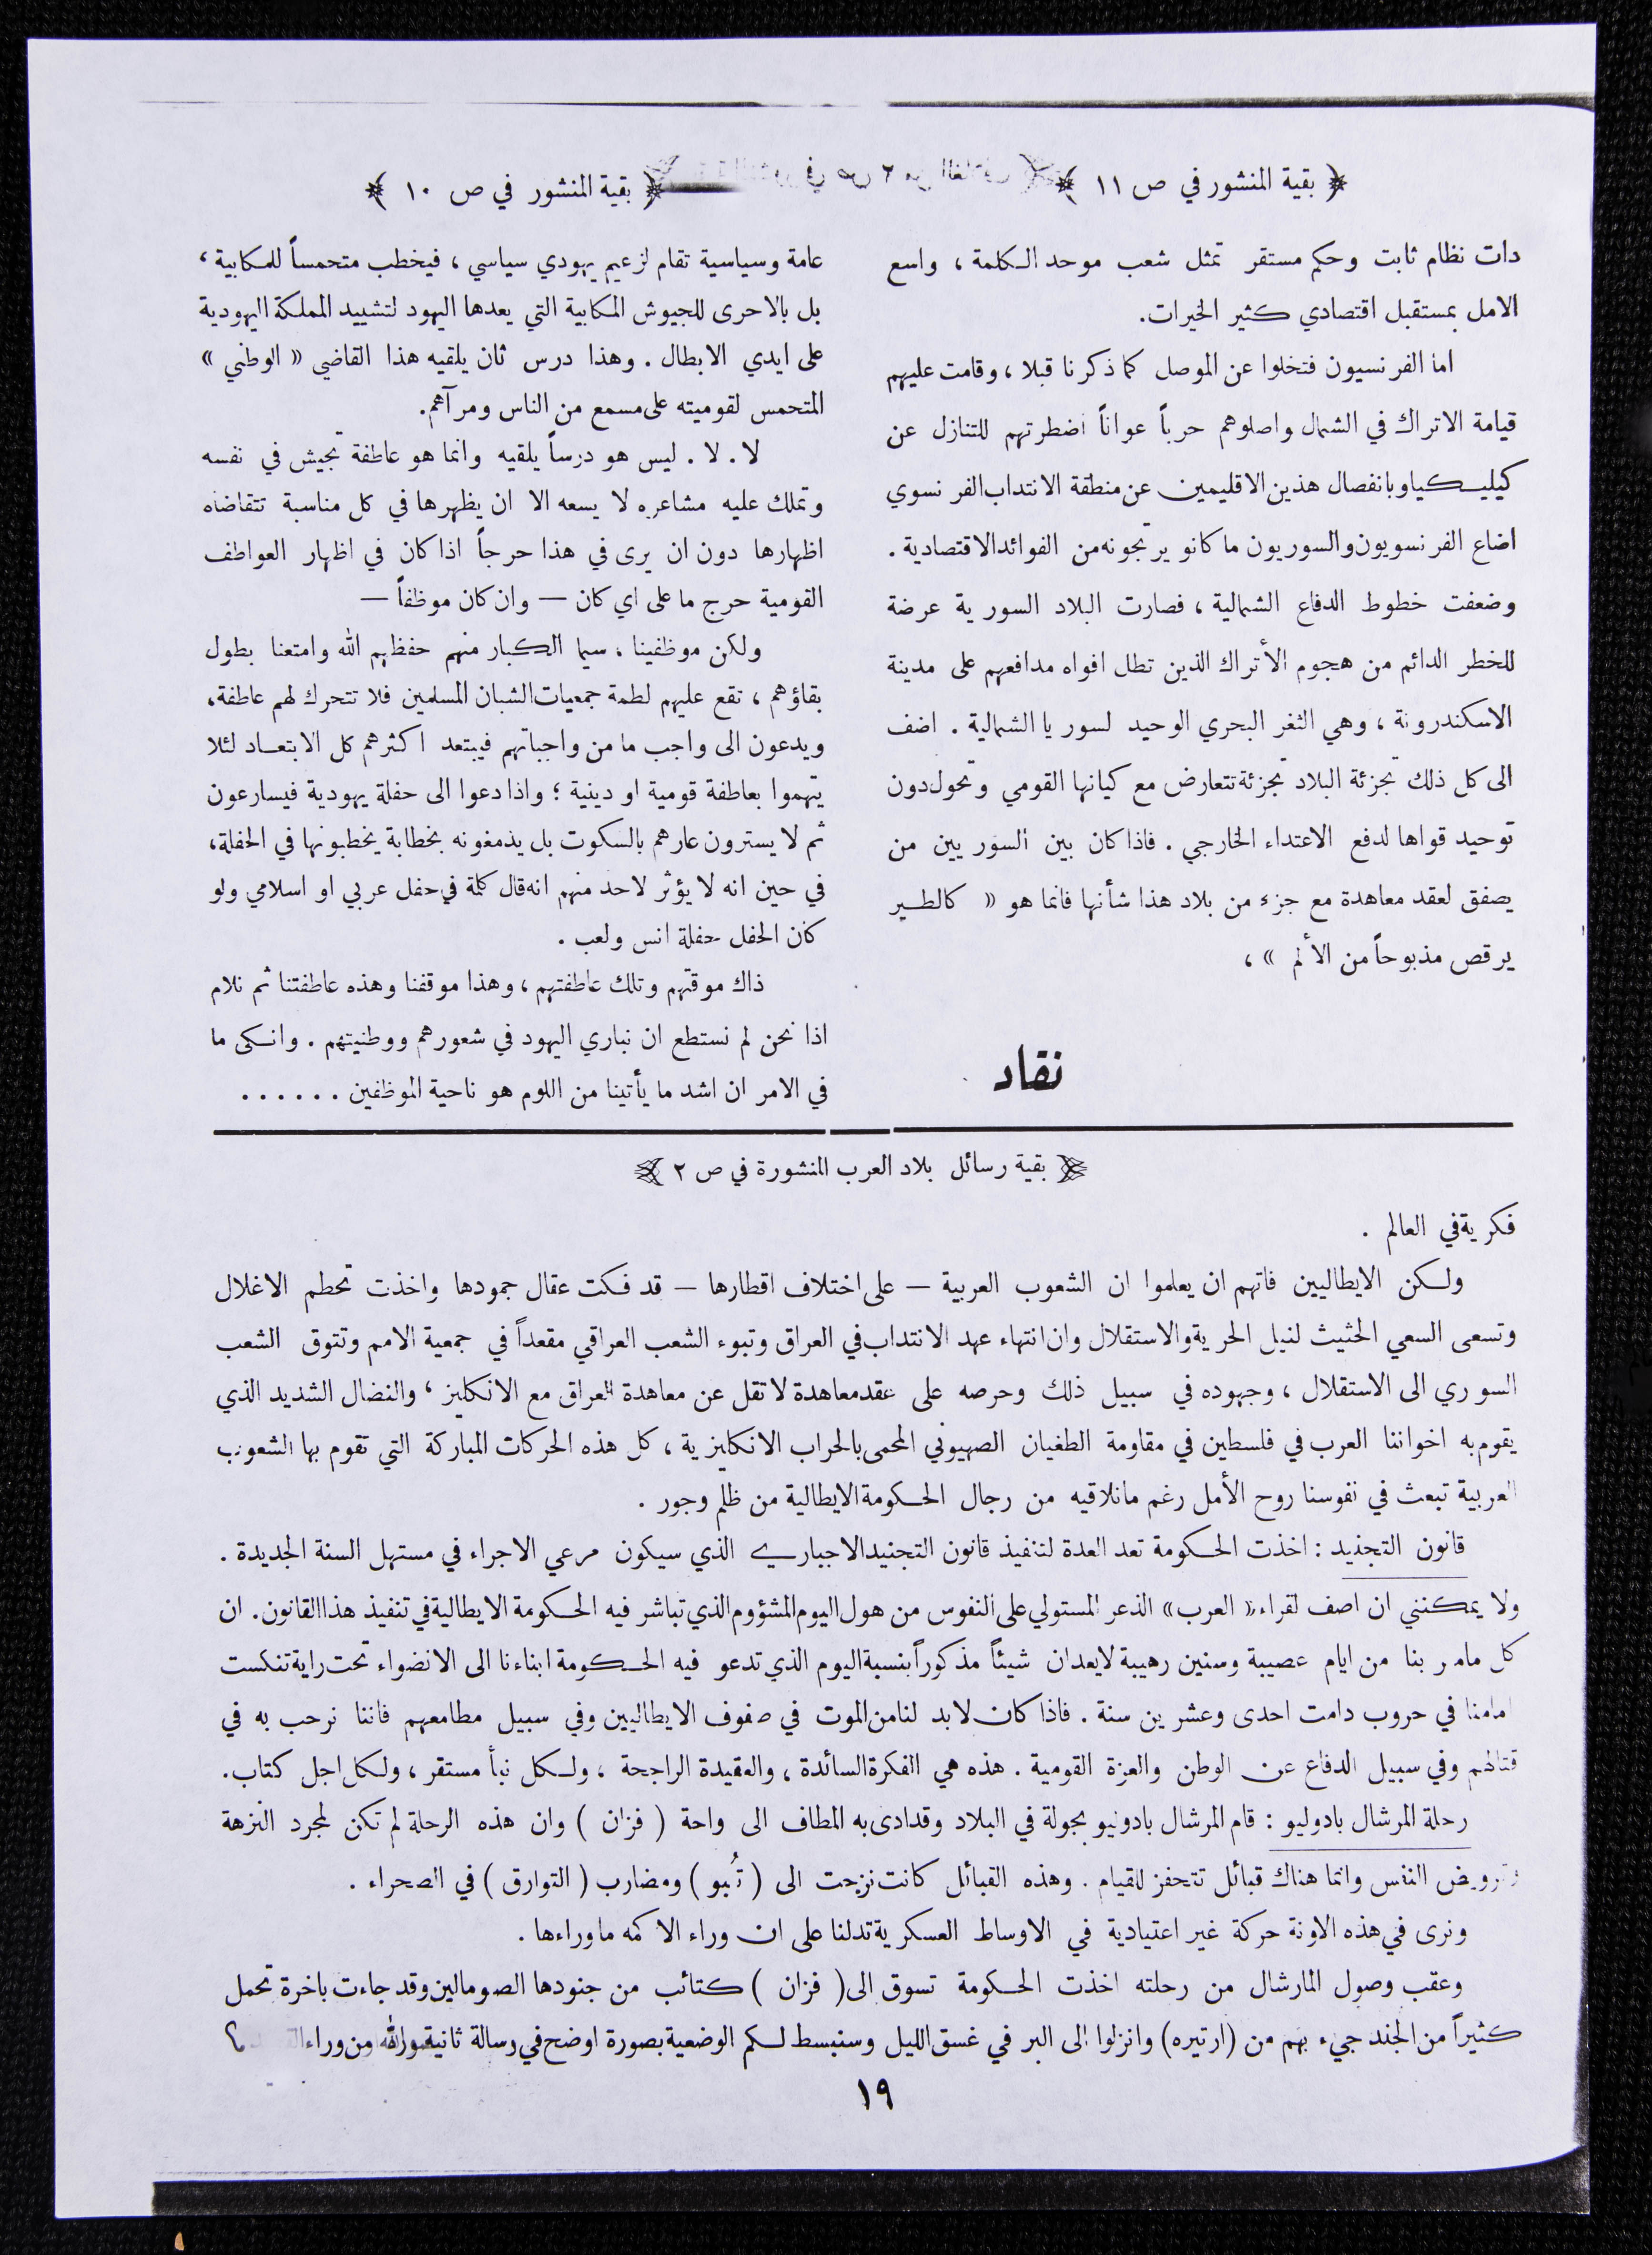 ﴿ بقية المنشور في ص ١١ ﴾
دات نظام ثابت وحكم مستقر تمثل شعب موحد الكلمة ، واسع
الامل بمستقبل اقتصادي كثير الخيرات.
اما الفرنسيون فتخلوا عن الموصل كما ذكرنا قبلا ، وقامت عليهم
قيامة الاتراك في الشمال واصلوهم حرباً عواناً اضطرتهم للتنازل عن
كيليكيا وبانفصال هذين الاقليمين عن منطقة الانتداب الفرنسوي
اضاع الفرنسويون والسوريون ما كانو يرتجونه من الفوائد الاقتصادية .
وضعفت خطوط الدفاع الشمالية ، فصارت البلاد السورية عرضة
للخطر الدائم من هجوم الأتراك الذين تطل افواه مدافعهم على مدينة
الاسكندرونة ، وهي الثغر البحري الوحيد لسوريا الشمالية . اضف
الى كل ذلك تجزئة البلاد تجزئة تتعارض مع كيانها القومي وتحول دون
توحيد قواها لدفع الاعتداء الخارجي . فاذا كان بين السوريين من
يصفق لعقد معاهدة مع جزء من بلاد هذا شأنها فانما هو « كالطير
يرقص مذبوحاً من الألم » ،
نقاد
﴿ بقية المنشور في ص ١٠ ﴾
عامة وسياسية تقام لزعيم يهودي سياسي ، فيخطب متحمساً للمكابية ،
بل بالاحرى للجيوش المكابية التي يعدها اليهود لتشييد المملكة اليهودية
على ايدي الابطال . وهذا درس ثان يلقيه هذا القاضي « الوطني »
المتحمس لقوميته على مسمع من الناس ومرآهم.
لا . لا . ليس هو درساً يلقيه وانما هو عاطفة تجيش في نفسه
وتملك عليه مشاعره لا يسعه الا ان يظهرها في كل مناسبة تتقاضاه
اظهارها دون ان يرى في هذا حرجاً اذا كان في اظهار العواطف
القومية حرج ما على اي كان — وان كان موظفاً —
ولكن موظفينا ، سيما الكبار منهم حفظهم الله وامتعنا بطول
بقاؤهم ، تقع عليهم لطمة جمعيات الشبان المسلمين فلا تتحرك لهم عاطفة،
ويدعون الى واجب ما من واجباتهم فيبتعد اكثرهم كل الابتعاد لئلا
يتهموا بعاطفة قومية او دينية ؛ واذا دعوا الى حفلة يهودية فيسارعون
ثم لا يسترون عارهم بالسكوت بل يذمغونه بخطابة يخطبونها في الحفلة،
في حين انه لا يؤثر لاحد منهم انه قال كلمة في حفل عربي او اسلامي ولو
كان الحفل حفلة انس ولعب .
ذاك موقفهم وتلك عاطفتهم ، وهذا موقفنا وهذه عاطفتنا ثم نلام
اذا نحن لم نستطع ان نباري اليهود في شعورهم ووطنيتهم . وانكى ما
في الامر ان اشد ما يأتينا من اللوم هو ناحية الموظفين ......
﴿ بقية رسائل بلاد العرب المنشورة في ص ٢ ﴾
فكرية في العالم .
ولكن الايطاليين فاتهم ان يعلموا ان الشعوب العربية — على اختلاف اقطارها — قد فكت عقال جمودها واخذت تحطم الاغلال
وتسعى السعي الحثيث لنيل الحرية والاستقلال وان انتهاء عهد الانتداب في العراق وتبوء الشعب العراقي مقعداً في جمعية الامم وتتوق الشعب
السوري الى الاستقلال ، وجهوده في سبيل ذلك وحرصه على عقد معاهدة لا تقل عن معاهدة العراق مع الانكليز ، والنضال الشديد الذي
يقوم به اخواننا العرب في فلسطين في مقاومة الطغيان الصهيوني المحمى بالحراب الانكليزية ، كل هذه الحركات المباركة التي تقوم بها الشعوب
العربية تبعث في نفوسنا روح الأمل رغم مانلاقيه من رجال الحكومة الايطالية من ظلم وجور .
قانون التجنيد : اخذت الحكومة تعد العدة لتنفيذ قانون التجنيد الاجباري الذي سيكون مرعي الاجراء في مستهل السنة الجديدة .
ولا يمكنني ان اصف لقراء « العرب » الذعر المستولي على النفوس من هول اليوم المشؤوم الذي تباشر فيه الحكومة الايطالية في تنفيذ هذا القانون. ان
كل مامر بنا من ايام عصيبة وسنين رهيبة لايعدان شيئاً مذكوراً بنسبة اليوم الذي تدعو فيه الحكومة ابناءنا الى الانضواء تحت راية تنكست
امامنا في حروب دامت احدى وعشرين سنة . فاذا كان لابد لنا من الموت في صفوف الايطاليين وفي سبيل مطامعهم فاننا نرحب به في
قتالهم وفي سبيل الدفاع عن الوطن والعزة القومية . هذه هي الفكرة السائدة ، والعقيدة الراجحة ، ولكل نبأ مستقر ، ولكل اجل كتاب.
رحلة المرشال بادوليو : قام المرشال بادوليو بجولة في البلاد وقدادى به المطاف الى واحة ( فزان ) وان هذه الرحلة لم تكن لمجرد النزهة
وترويض النفس وانما هناك قبائل تتحفز للقيام . وهذه القبائل كانت نزحت الى ( تُبو ) ومضارب ( التوارق ) في الصحراء .
ونرى في هذه الاونة حركة غير اعتيادية في الاوساط العسكرية تدلنا على ان وراء الاكمه ماوراءها .
وعقب وصول المارشال من رحلته اخذت الحكومة تسوق الى ( فزان ) كتائب من جنودها الصومالين وقد جاءت باخرة تحمل
كثيراً من الجند جيء بهم من (ارتيره) وانزلوا الى البر في غسق الليل وسنبسط لكم الوضعية بصورة اوضح في رسالة ثانية والله من وراء
١٩